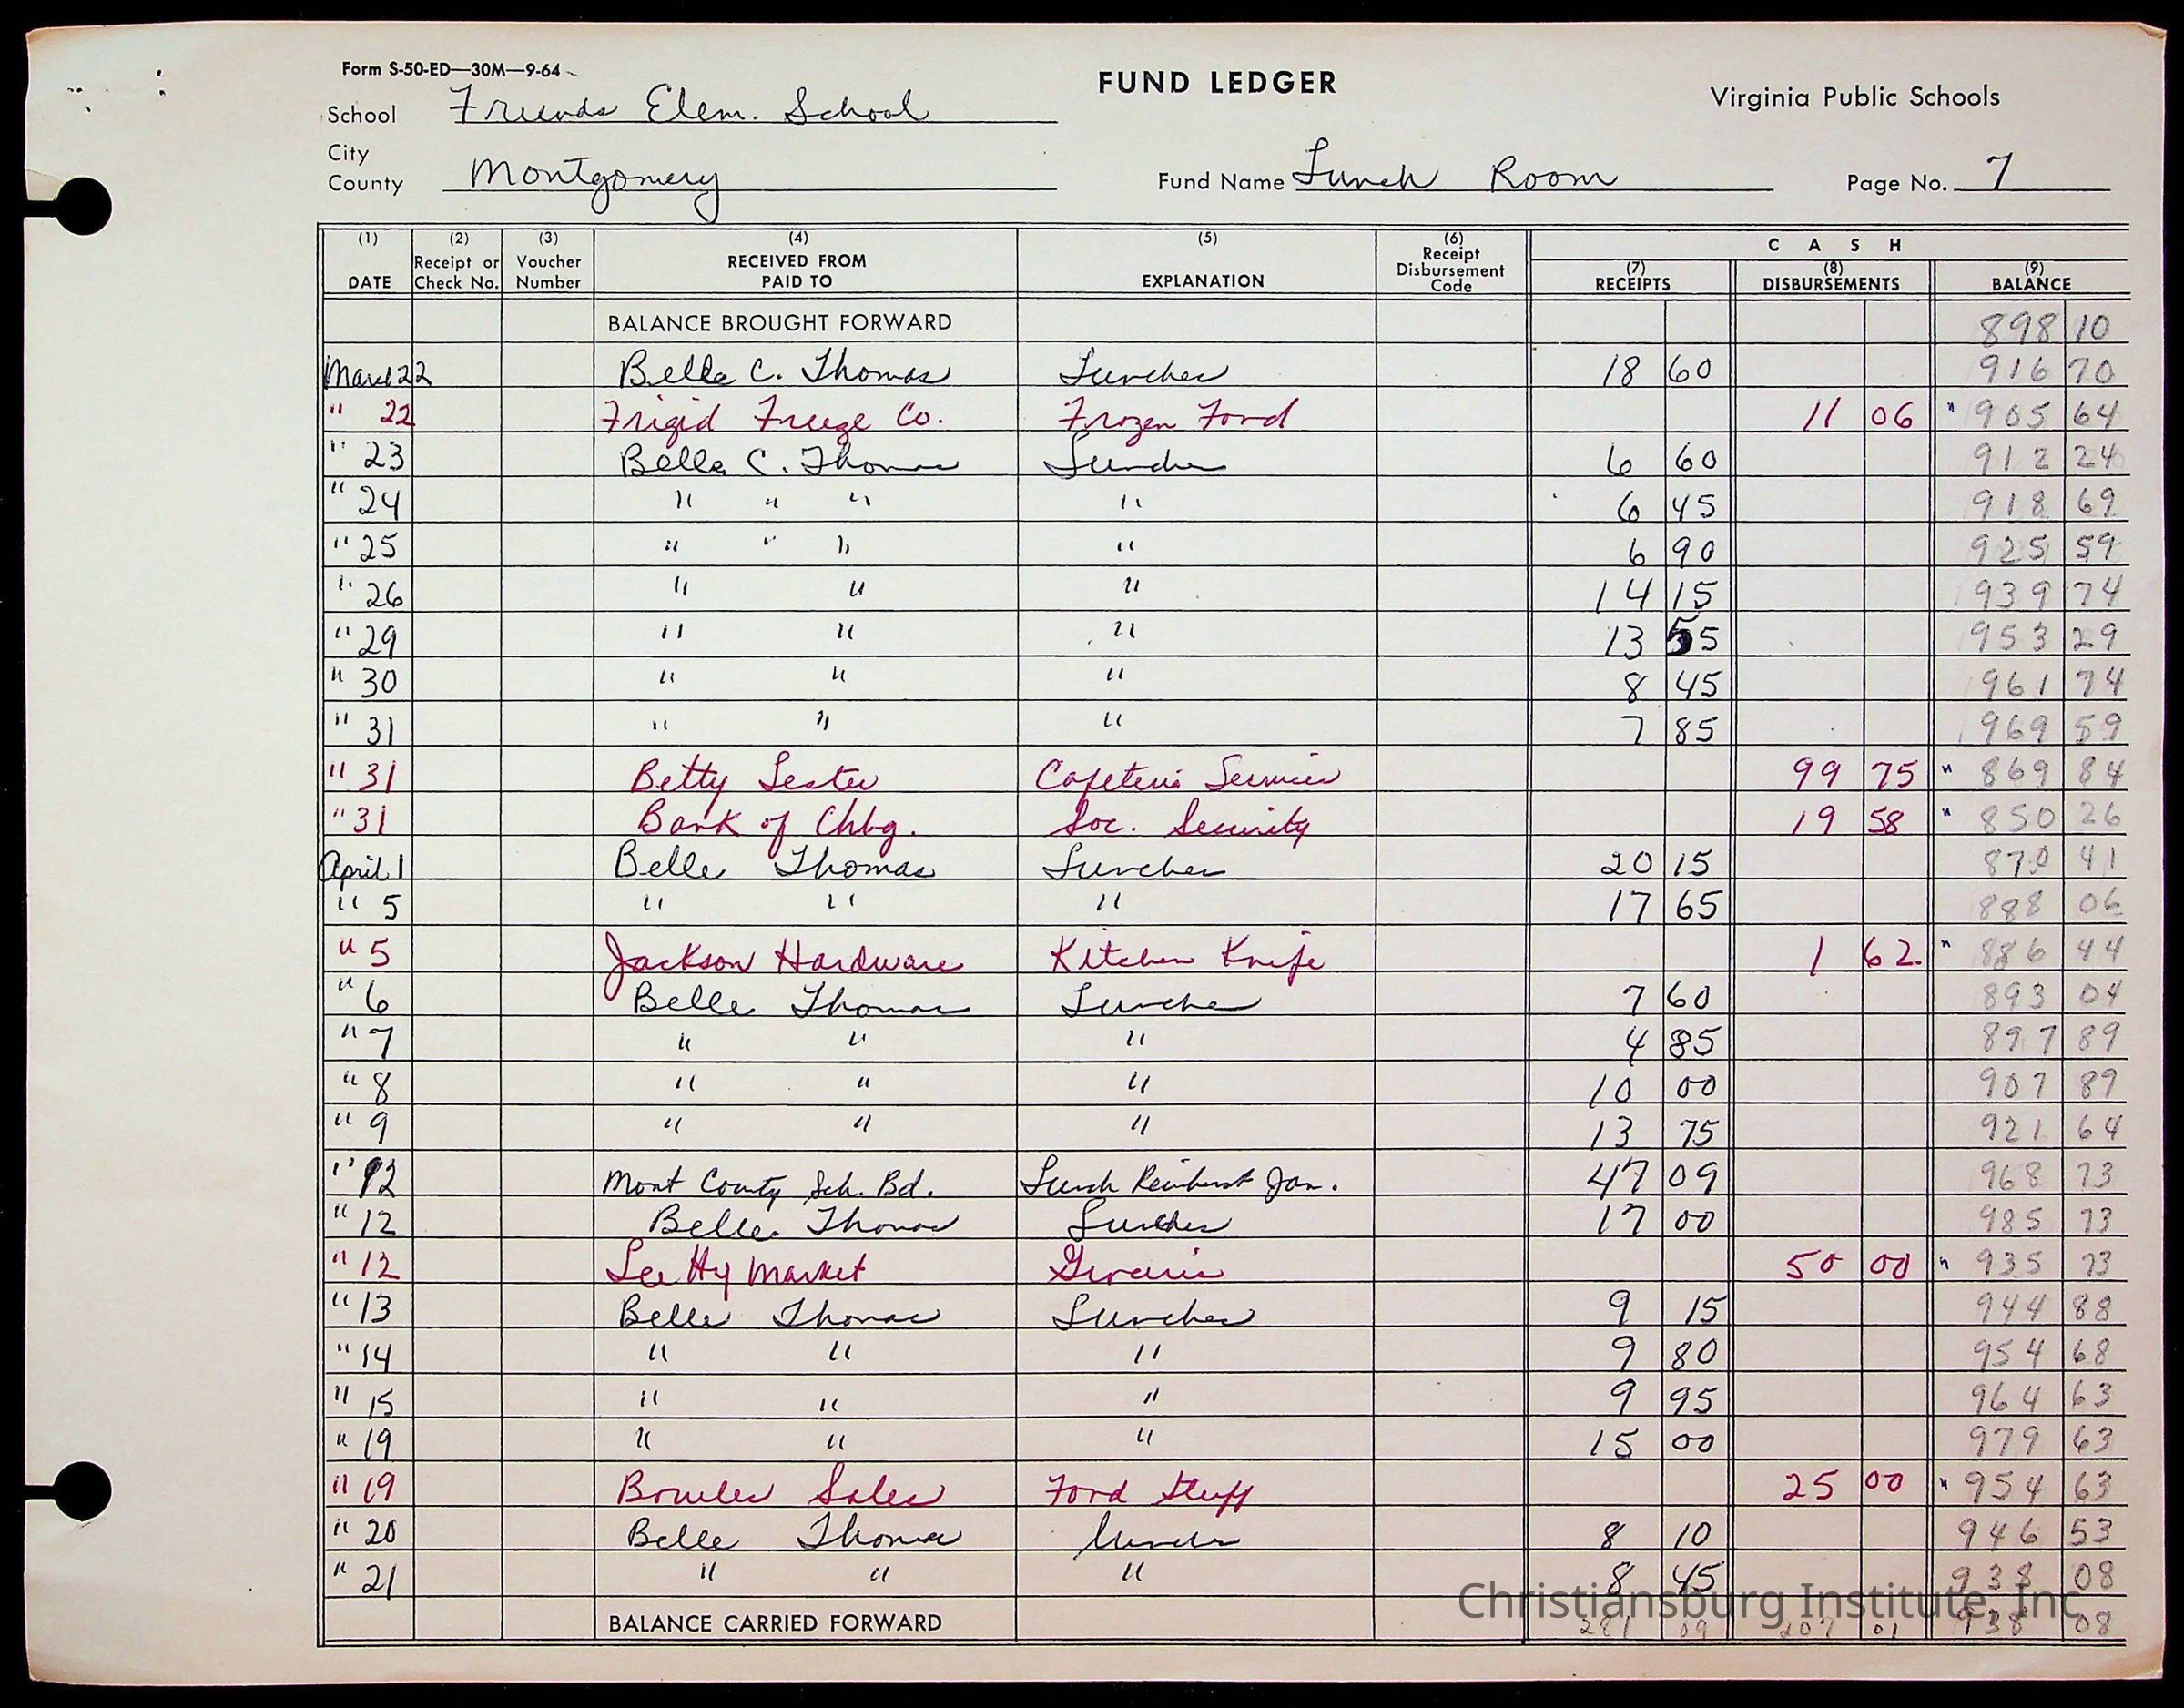 Form S-50-ED—30M—9-64
FUND LEDGER
Virginia Public Schools
School Friends Elem. School
City
County Montgomery
Fund Name Lunch Room
Page No. 7
(1) DATE (2) Receipt or Check No. (3) Voucher Number (4) RECEIVED FROM PAID TO (5) EXPLANATION (6) Receipt Disbursement Code CASH (7) RECEIPTS (8) DISBURSEMENTS (9) BALANCE
BALANCE BROUGHT FORWARD 898 10
March 22 Belle C. Thomas Lunches 18 60 916 70
" 22 Frigid Freeze Co. Frozen Food 11 06 " 905 64
" 23 Belle C. Thomas Lunches 6 60 912 24
" 24 " " " " 6 45 918 69
" 25 " " " " 6 90 925 59
" 26 " " " 14 15 939 74
" 29 " " " 13 55 953 29
" 30 " " " 8 45 961 74
" 31 " " " 7 85 969 59
" 31 Betty Lester Cafeteria Services 99 75 " 869 84
" 31 Bank of Chbg. Soc. Security 19 58 " 850 26
April 1 Belle Thomas Lunches 20 15 870 41
" 5 " " " 17 65 888 06
" 5 Jackson Hardware Kitchen Knife 1 62 " 886 44
" 6 Belle Thomas Lunches 7 60 893 04
" 7 " " " 4 85 897 89
" 8 " " " 10 00 907 89
" 9 " " " 13 75 921 64
" 12 Mont County Sch. Bd. Lunch Reimburst Jan. 47 09 968 73
" 12 Belle Thomas Lunches 17 00 985 73
" 12 Lee Hy Market Groceries 50 00 " 935 73
" 13 Belle Thomas Lunches 9 15 944 88
" 14 " " " 9 80 954 68
" 15 " " " 9 95 964 63
" 19 " " " 15 00 979 63
" 19 Bowles Sales Food Stuff 25 00 " 954 63
" 20 Belle Thomas Lunches 8 10 946 53
" 21 " " " 8 45 938 08
BALANCE CARRIED FORWARD 281 09 207 01 938 08
Christiansburg Institute, Inc